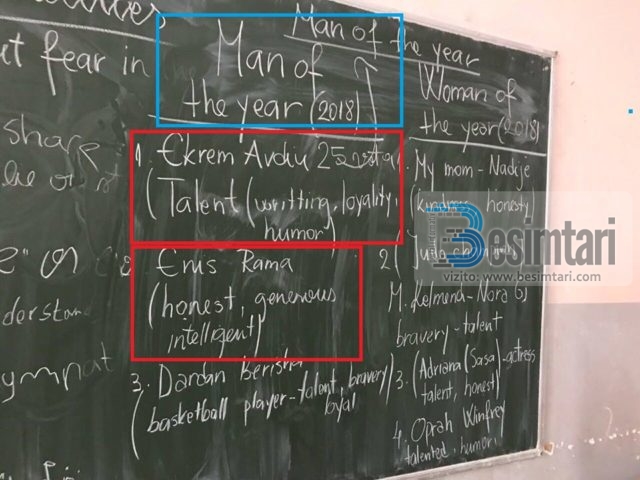 ut fear in
share
Man of
the year (2018)
1. Ekrem Avdiu
(Talent (writting, loyality,
humor)
2. Enis Rama
(honest, generious
intelligent)
3. Dardan Berisha
(basketball player-talent, bravery)
loyal
Man of the year
Woman of
the year (2018)
1. My mom - Nadije
(kindness, honesty
2(
M. Kelmend - Nora of
bravery - talent
3. (Adriana (Sasa)-actress
talent, honest)
4. Oprah Winfrey
talented, humor,
e" or
derstan
ympat
Besimtari
vizito: www.besimtari.com